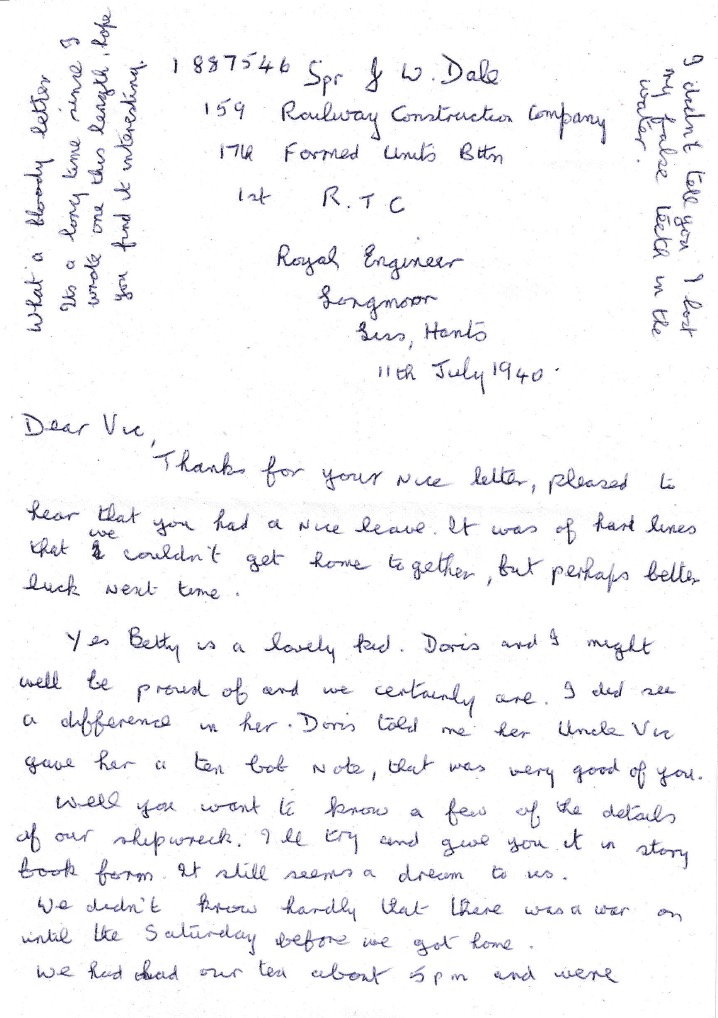 1887546 Spr J W. Dale
159 Railway Construction Company
17th Formed Units Bttn
1st R.T C
Royal Engineer
Longmoor
Liss, Hants
11th July 1940.
What a bloody letter
Its a long time since I
wrote one this length, hope
you find it interesting.
I didn't tell you I lost
my false teeth in the
water.
Dear Vic,
Thanks for your nice letter, pleased to
hear that you had a nice leave. It was of hard lines
that we couldn't get home together, but perhaps better
luck next time.
Yes Betty is a lovely kid. Doris and I might
well be proud of and we certainly are. I did see
a difference in her. Doris told me her Uncle Vic
gave her a ten bob note, that was very good of you.
Well you want to know a few of the details
of our shipwreck. I ll try and give you it in story
book form. It still seems a dream to us.
We didn't know hardly that there was a war on
until the Saturday before we got home.
We had had our tea about 5 pm and were